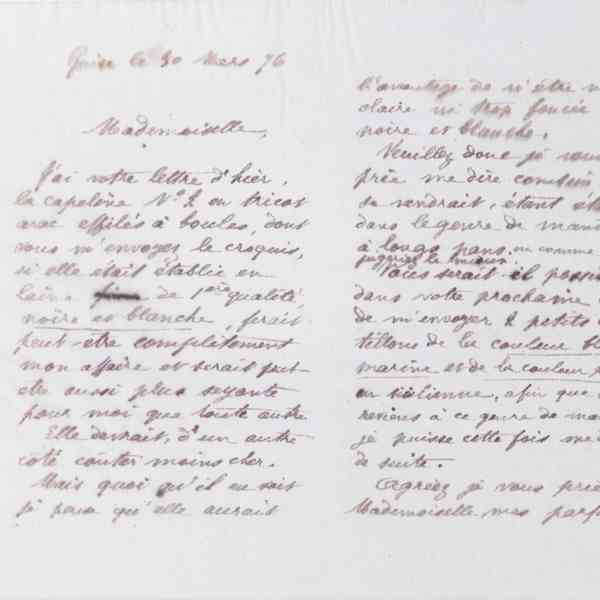 le 30 Mars 76
Mademoiselle,
J'ai votre lettre d'hier,
la capeline N° 2 en tricot
avec effilés à boules, dont
vous m'envoyez le croquis,
si elle était établie en
laine de 1ère qualité,
noire et blanche, ferait
peut-être complètement
mon affaire et serait peut-
être aussi plus seyante
pour moi que toute autre.
Elle devrait, d'un autre
côté coûter moins cher.
Mais quoi qu'il en soit
je pense qu'elle aurait
l'avantage de n'être n
claire ni trop foncée
noire et blanche.
Veuillez donc je vous
prie me dire combien
se vendrait, étant
dans le genre de
à longs pans, ou comme
jugerez le mieux.
Vous serait-il possi
dans votre prochaine
de m'envoyer 2 petits
de la couleur bl
marine et de la couleur
en sicilienne, afin que
reviens à ce genre de
je puisse cette fois me
de suite.
Agréez je vous prie
Mademoiselle mes parf